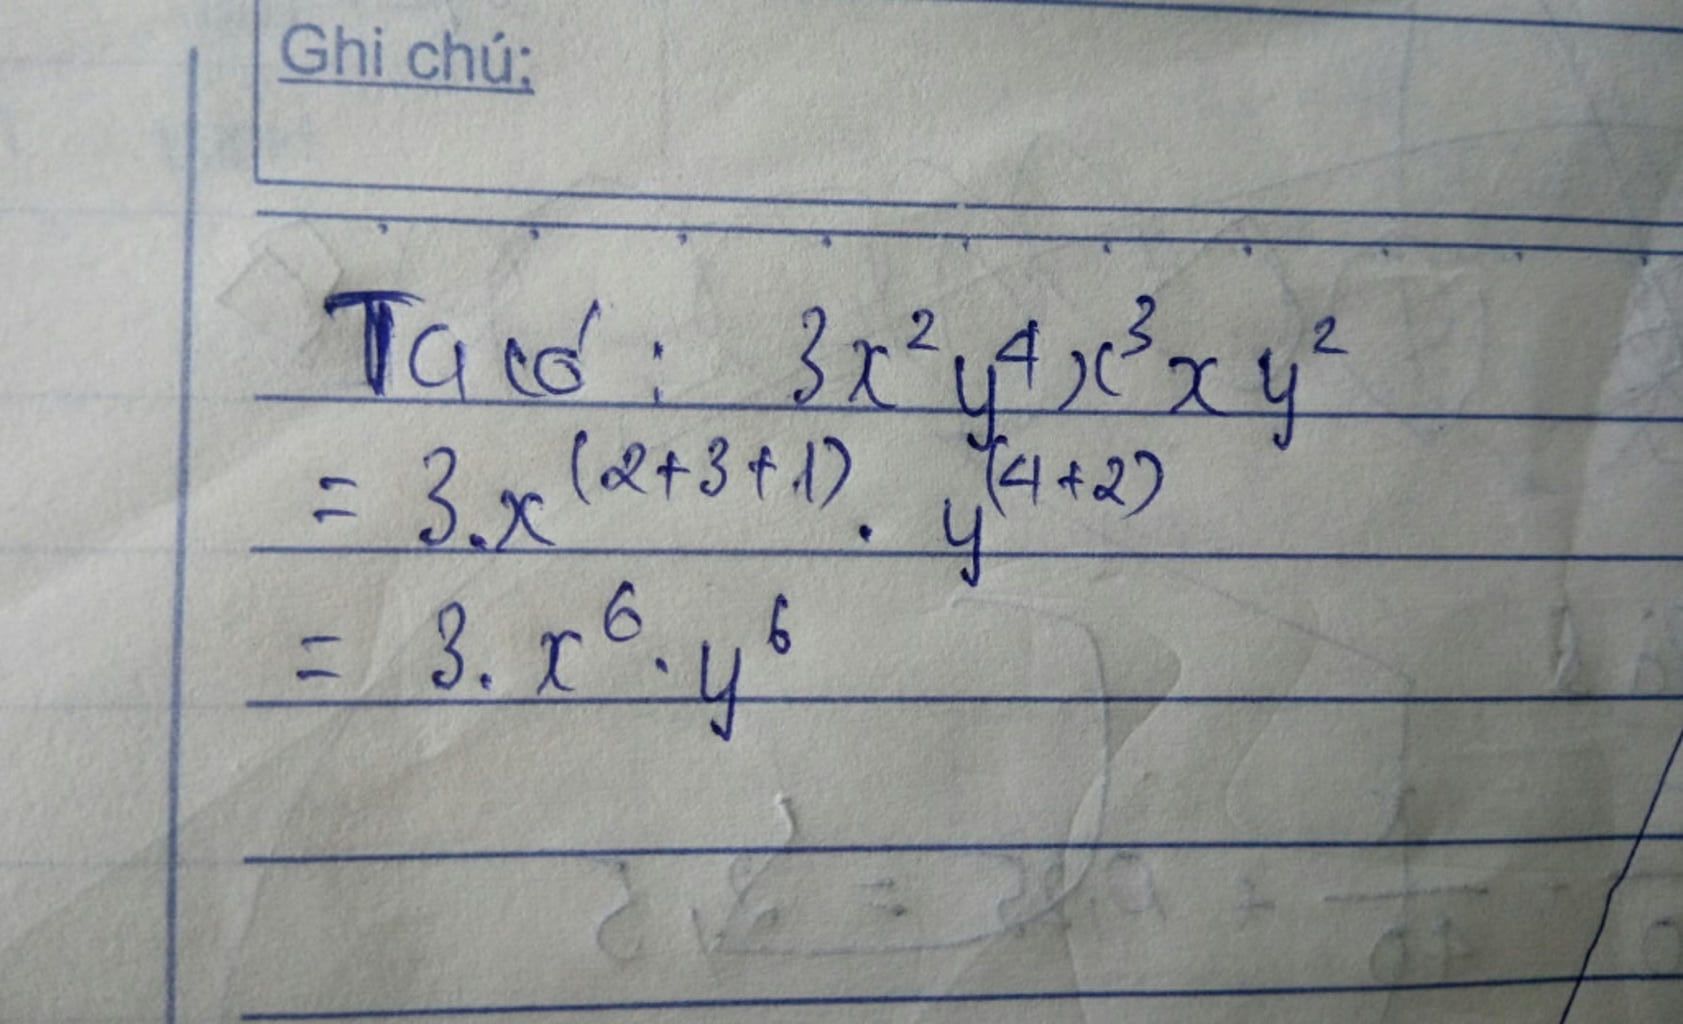 Ghi chú:
Ta có: 3x²y⁴x³xy²
= 3.x⁽²⁺³⁺¹⁾. y⁽⁴⁺²⁾
= 3. x⁶. y⁶